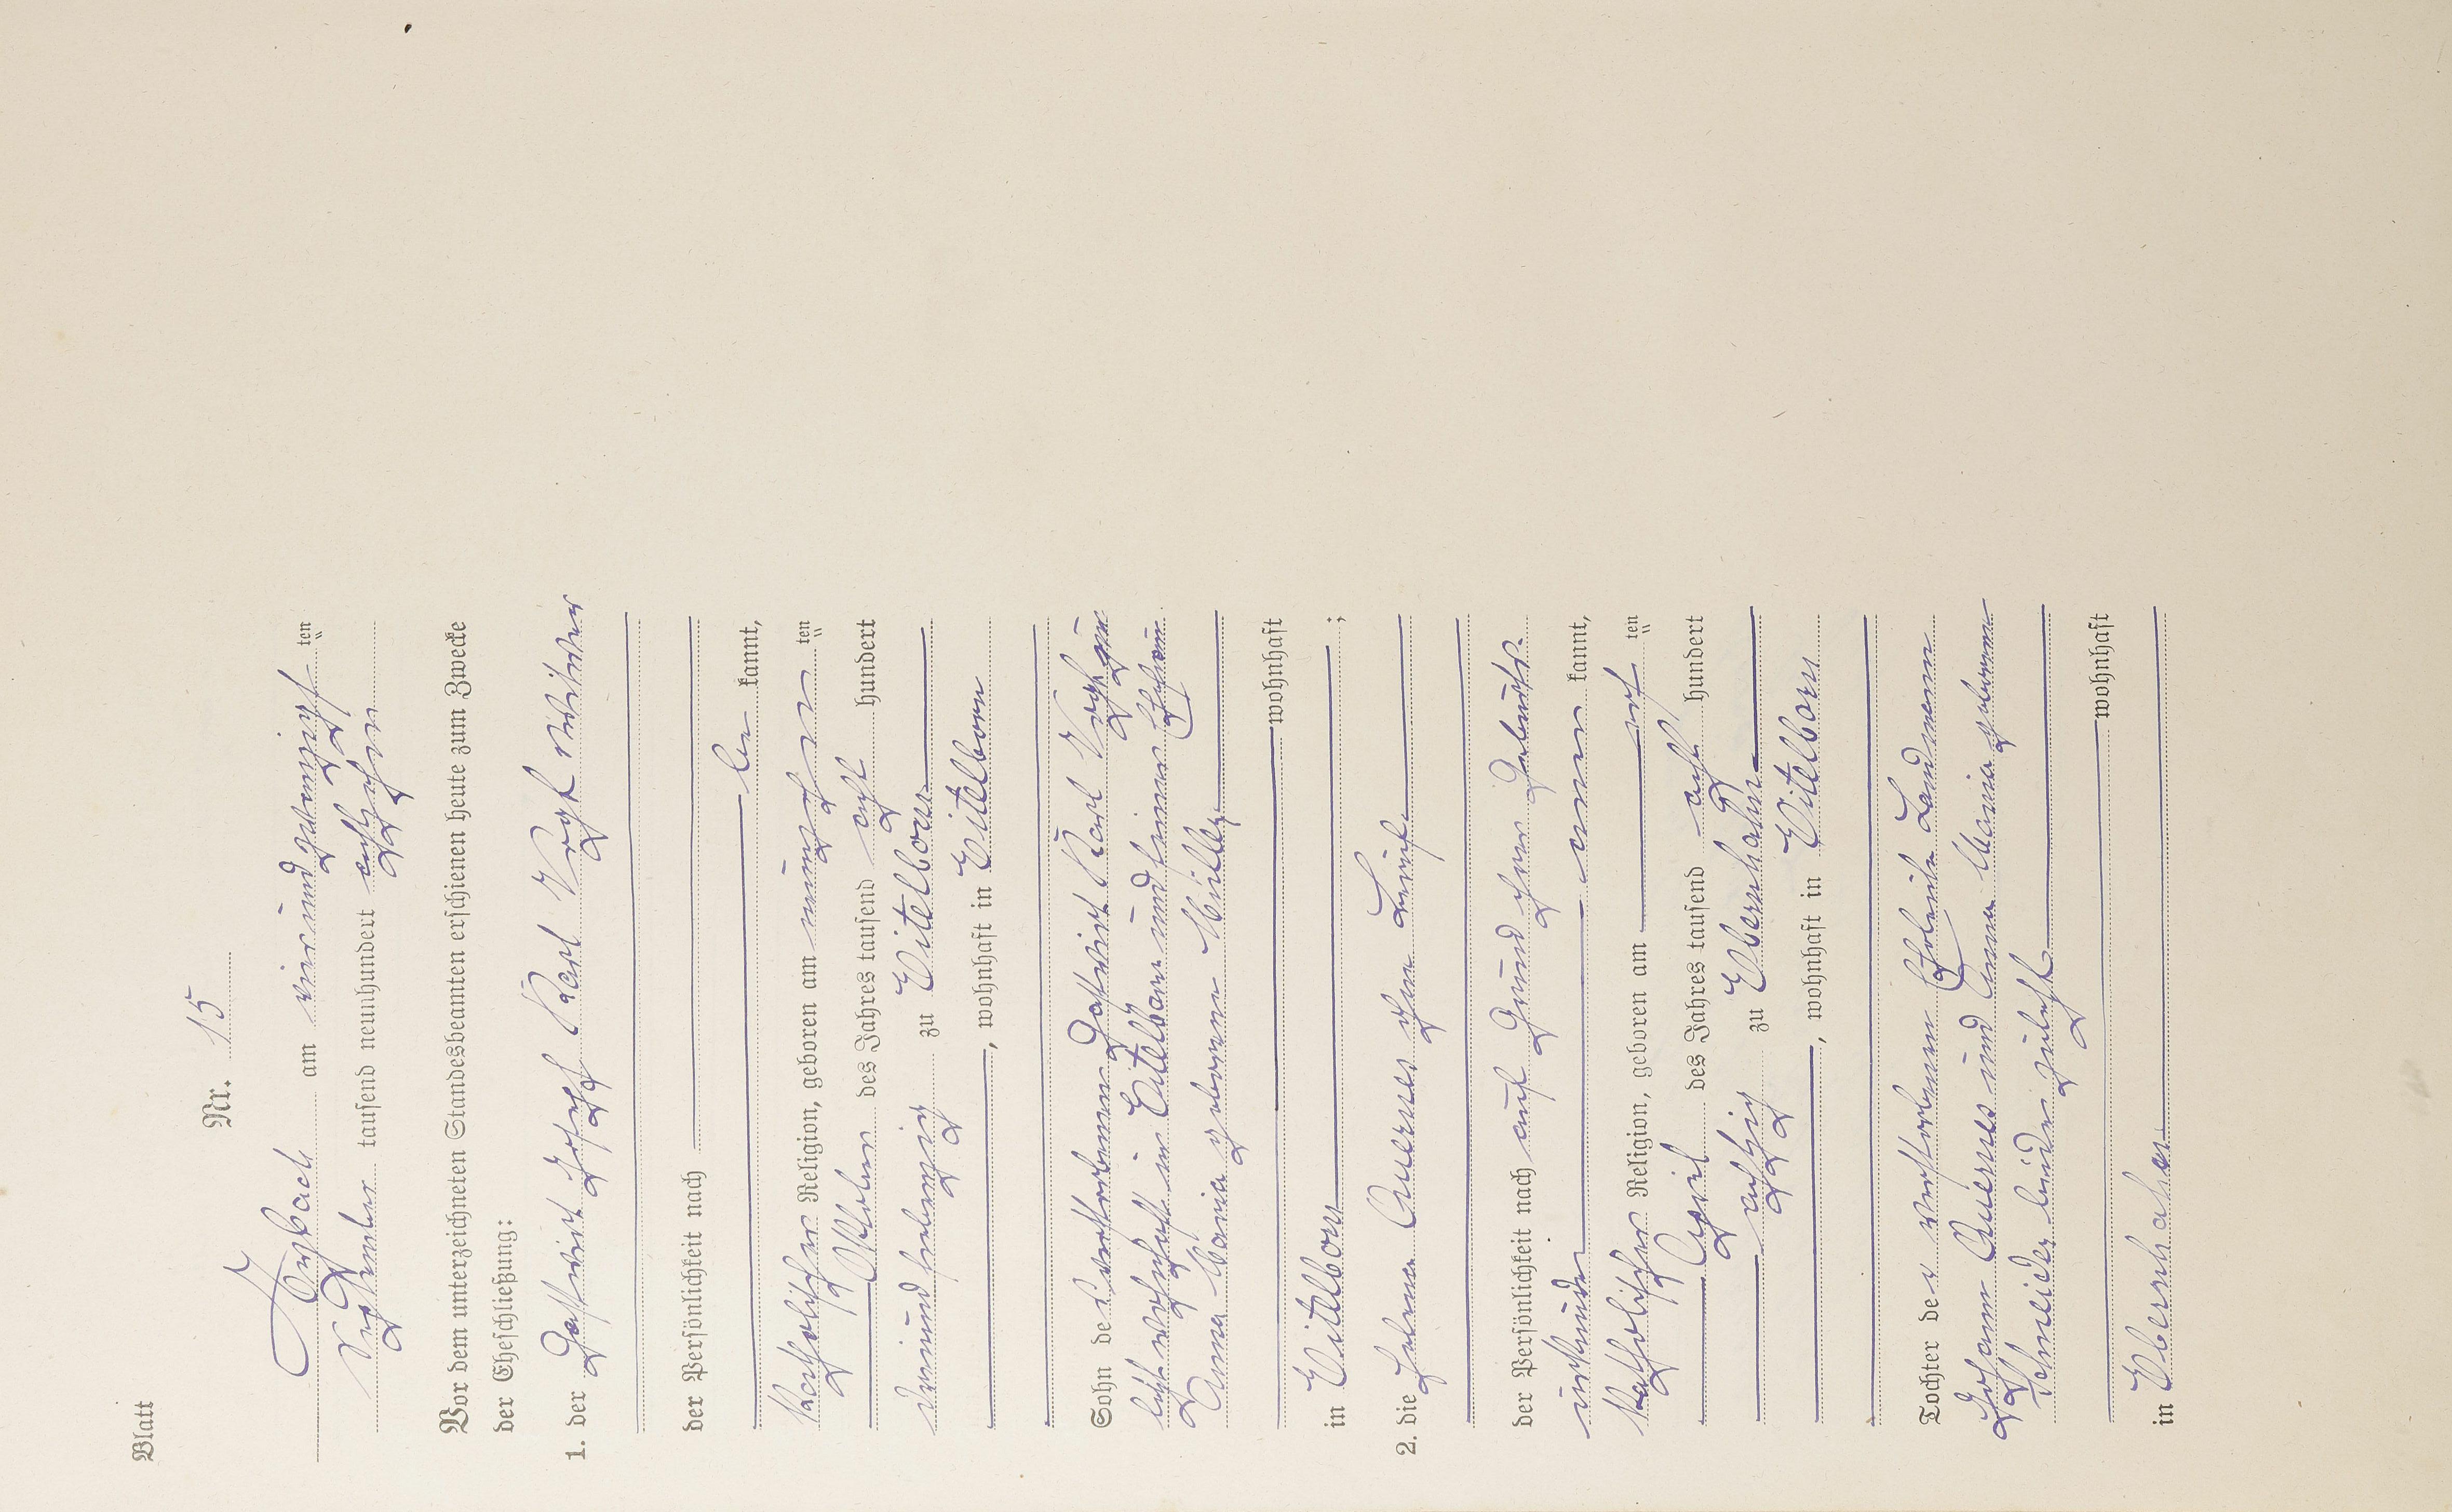 Blatt
Nr. 15
Arzbach am vierundzwanzigsten
September tausend neunhundert achtzehn
Vor dem unterzeichneten Standesbeamten erschienen heute zum Zwecke
der Eheschließung:
1. der Gastwirt Joseph Karl Vogt Witwer
der Persönlichkeit nach
be kannt,
katholischer Religion, geboren am neunzehnten
Oktober des Jahres tausend acht hundert
dreiundsiebenzig zu Eitelborn
, wohnhaft in Eitelborn
Sohn des verstorbenen Gastwirt Karl Vogt zu-
letzt wohnhaft in Eitelborn und seiner Ehefrau
Anna Maria geborene Müller
wohnhaft
in Eitelborn ;
2. die Helena Quernes ohne Beruf
der Persönlichkeit nach auf Grund ihrer Geburts-
urkunde aner kannt,
katholischer Religion, geboren am ten
April des Jahres tausend acht hundert
achtzig zu Ebernhahn
, wohnhaft in Eitelborn
Tochter der verstorbenen Eheleute Landmann
Johann Quernes und Anna Maria geborene
Schneider beide zuletzt
wohnhaft
in Ebernhahn